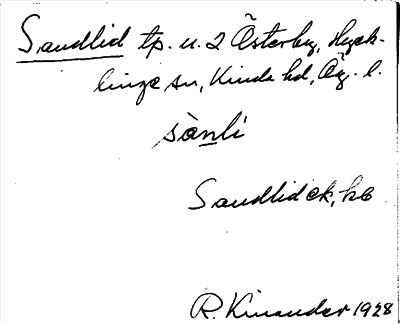 Sandlid tp. u. 2 Österby, Hyck-
linge sn, Kinda hd, Ög. l.
sànlì
Sandlid ek, hc
R. Kinander 1928